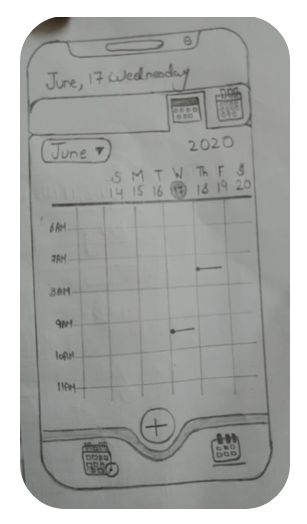 June, 17 Wednesday
June ▾ 2020
S M T W Th F S
14 15 16 17 18 19 20
6AM
7AM
8AM
9AM
10AM
11AM
+